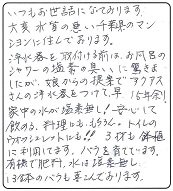 いつもお世話になっております。
大変水質の悪い千葉県のマン
ションに住んでおります。
浄水器を取付ける前は、お風呂の
シャワーの塩素の臭いに驚きま
したが、娘からの提案でアクアス
さんの浄水器をつけて早15年余り
家中の水が塩素無し!安心して
飲める、料理にも、もちろん、トイレの
ウォシュレットにも!!3杯も
に利用してます。バラを育てています。
有機で肥料、水は塩素無し、
13本のバラも喜んでおります。